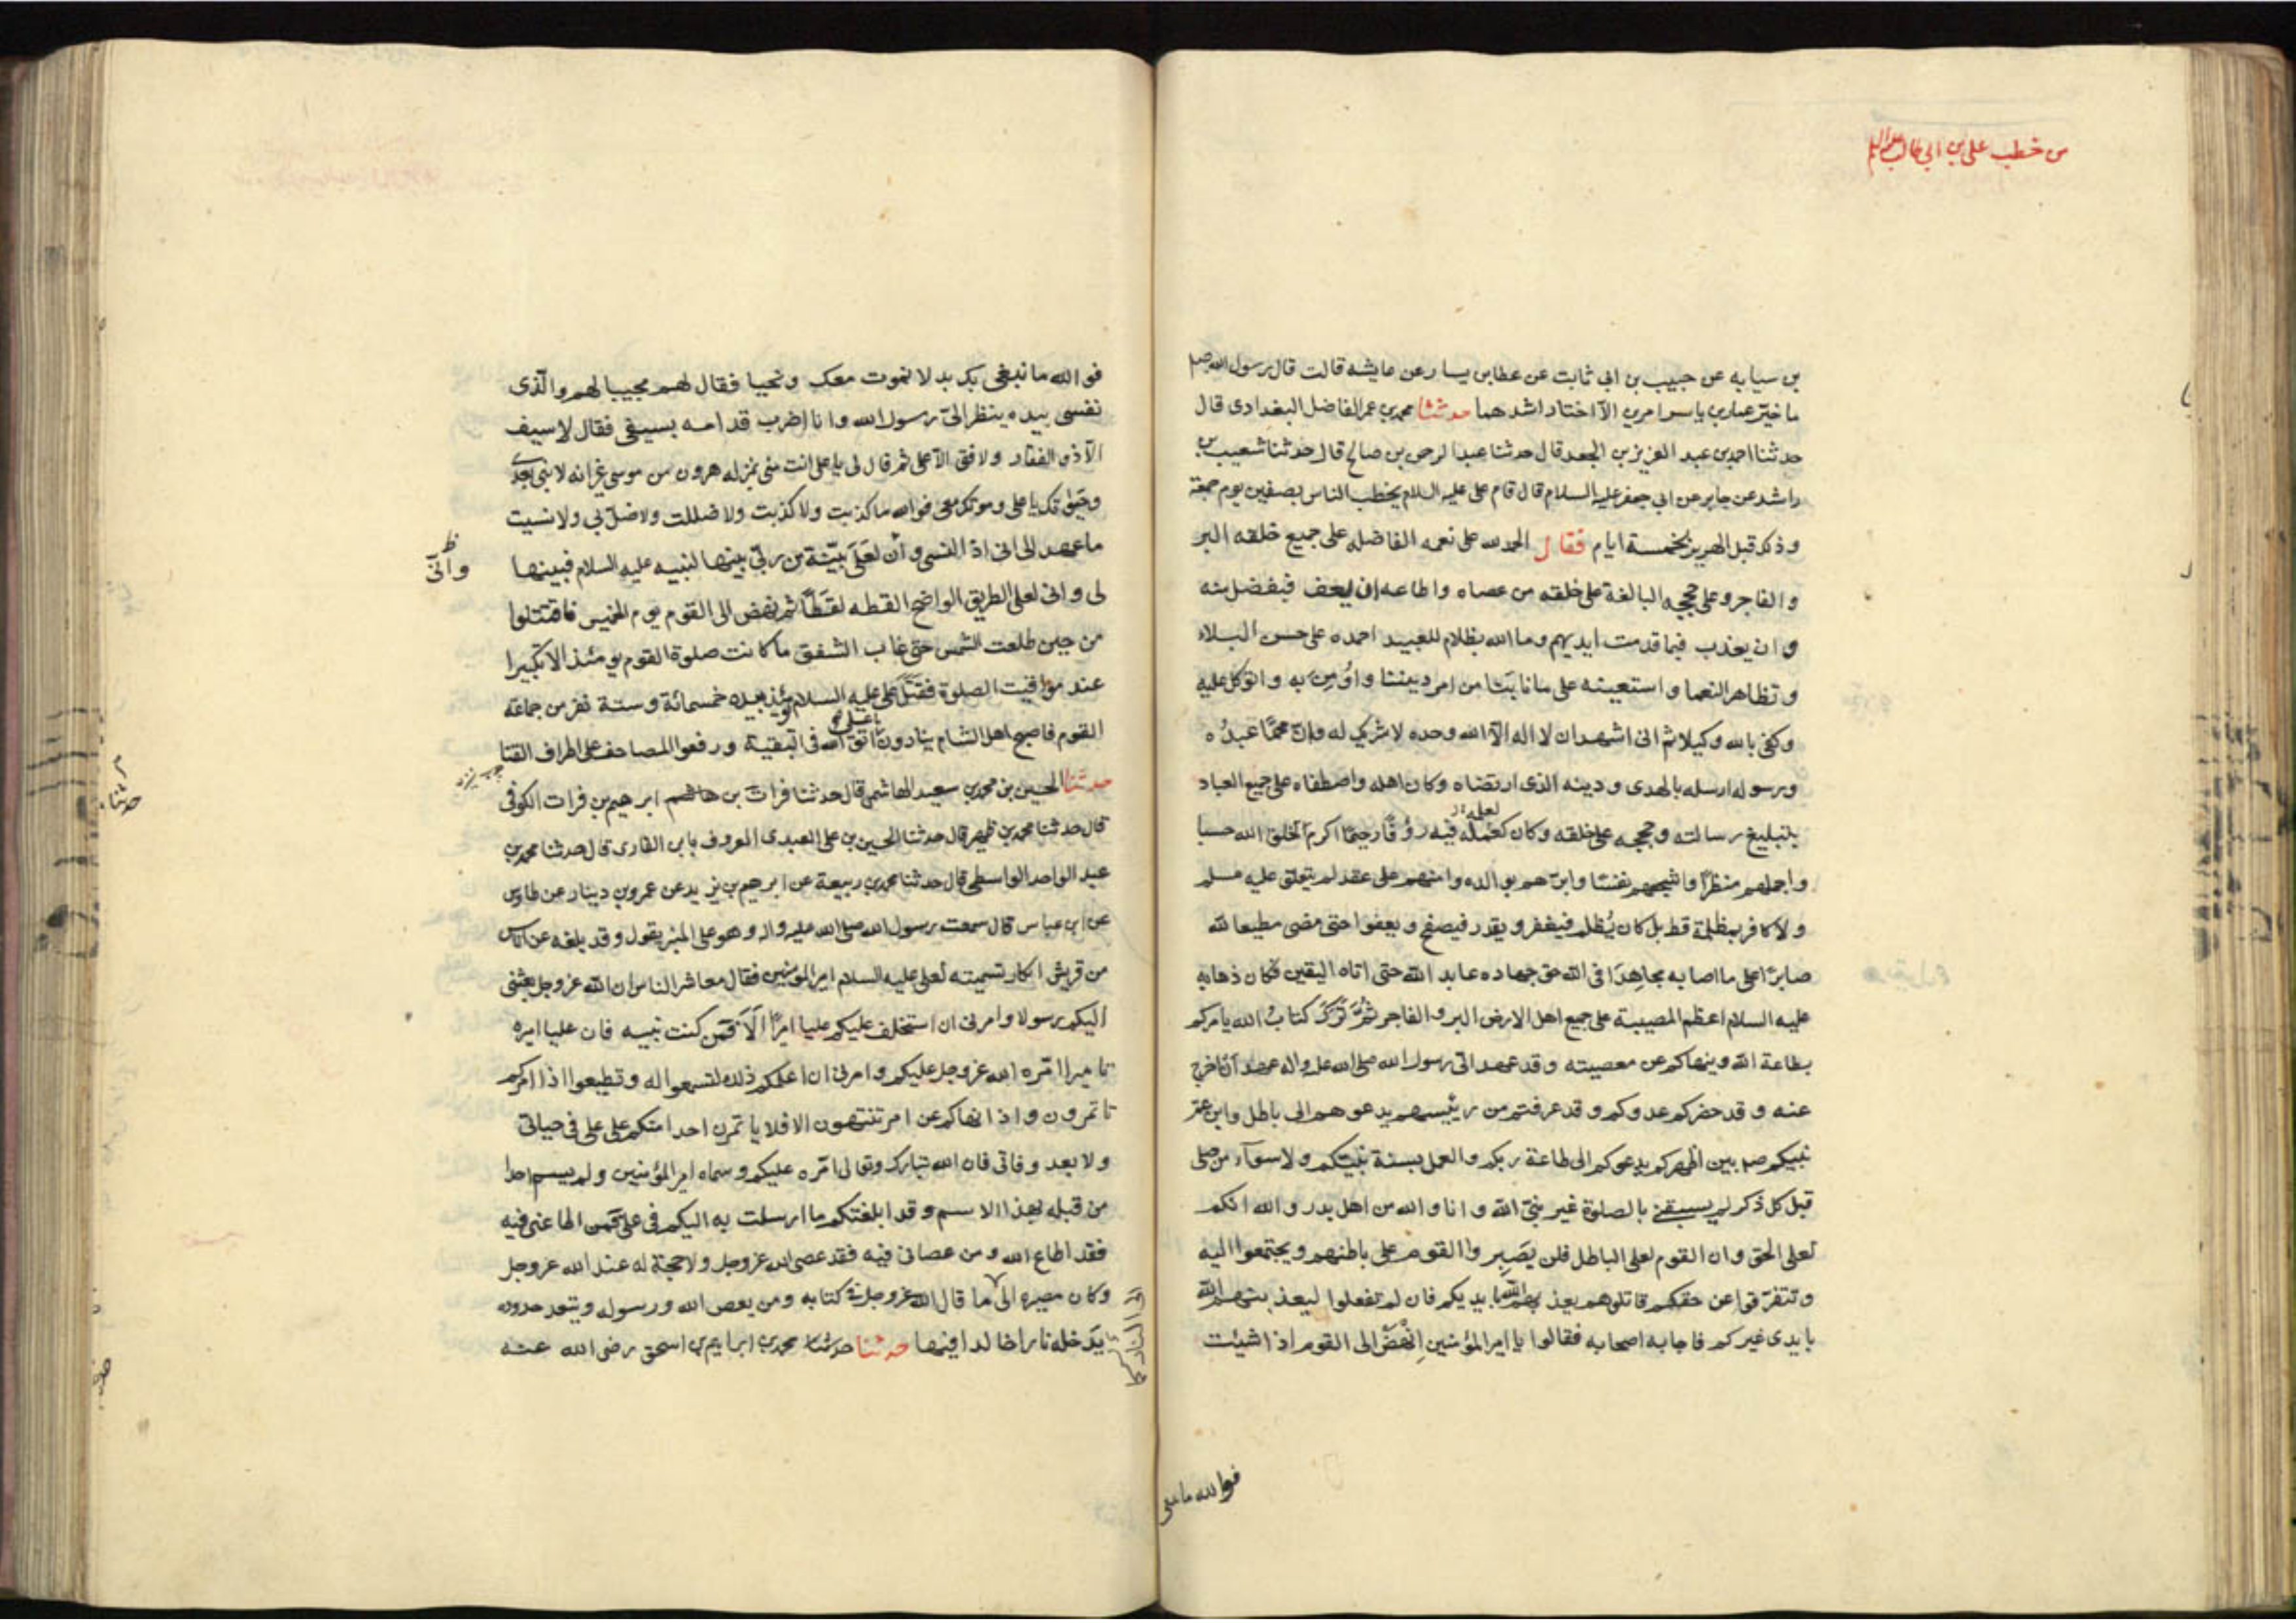 من خطب علي بن ابي طالب عليه السلام
بن سيابه عن حبيب بن ابي ثابت عن عطا بن يسار عن عايشه قالت قال رسول الله صلع
ما خيّر عمار بن ياسر امرين الّا اختار اشدهما حدثنا محمد بن عمر الفاضل البغدادى قال
حدثنا احمد بن عبد العزيز بن الجعد قال حدثنا عبد الرحمن بن صالح قال حدثنا شعيب بن
راشد عن جابر عن ابي جعفر عليه السلام قال قام على عليه السلام يخطب الناس بصفين يوم جمعة
وذلك قبل الهرير بخمسة ايام فقال الحمد لله على نعمه الفاضله على جميع خلقه البر
والفاجر وعلى حججه البالغة على خلقه من عصاه واطاعه ان يعف فبفضل منه
وان يعذب فبما قدمت ايديهم وما الله بظلام للعبيد احمده على حسن البلاء
وتظاهر النعما واستعينه على ما نابنا من امر ديننا واؤمن به واتوكل عليه
وكفى بالله وكيلا ثم انى اشهد ان لا اله الّا الله وحده لا شريك له وانّ محمّدا عبدُه
ورسوله ارسله بالهدى ودينه الذى ارتضاه وكان اهله واصطفاه على جميع العباد
بتبليغ رسالته وحججه على خلقه وكان كعلمه فيه رؤفا رحيما اكرم الخلق الله حسبا
واجملهم منظرا واشجعهم نفسا وابرّهم بوالده وامنهم على عقد لم يتعلق عليه مسلم
ولا كافر بمظلمة قط بل كان يُظلم فيغفر ويقدر فيصفح ويعفوا حتى مضى مطيعا لله
صابرًا على ما اصابه مجاهدًا فى الله حق جهاده عابد الله حتى اتاه اليقين فكان ذهابه
عليه السلام اعظم المصيبة على جميع اهل الارض البر والفاجر ثمّ تَرَكَ كتابُ الله يامركم
بطاعة الله وينهاكم عن معصيته وقد عهد الىّ رسول الله صلى الله عليه واله عهدا
عنه وقد حضركم عدوكم وقد عرفتم من رئيسهم يدعوهم الى باطل وابن عمّ
نبيكم صلع بين اظهركم يدعوكم الى طاعة ربكم والعمل بسنة نبيّكم ولا سوآء من صلى
قبل كل ذكر لم يسبقنى بالصلوة غير نبيّ الله وانا والله من اهل بدر والله انكم
لعلى الحق وان القوم لعلى الباطل فلن يَصبِروا القوم على باطنهم ويجتمعوا اليه
وتتفرّقوا عن حقكم قاتلوهم يعذبهم الله بايديكم فان لم تفعلوا ليعذبنهم الله
بايدى غيركم فاجابه اصحابه فقالوا يا امير المؤمنين انْهَضْ الى القوم اذا شيئت
فوالله ما نبغى
فوالله ما نبغى بك بدلا نموت معك ونحيا فقال لهم مجيبا لهم والّذى
نفسى بيده ينظر الىّ رسول الله وانا اضرب قدامه بسيفى فقال لا سيف
الّا ذو الفقار ولا فتى الّا على ثم قال لى يا على انت منى بمنزله هرون من موسى غير انه لا نبى بعدى
وحَيٰوتك يا على وموتك معى فوالله ما كذبت ولا كذبت ولا ضللت ولا ضلّ بي ولا نسيت
ما عهد الى انى اذا النسى وأنّ لعلى بيّنة من ربّي بينها لنبيه عليه السلام فبينها
وانّى
لى وانى لعلى الطريق الواضح القطه لقطًا ثم نهض الى القوم يوم الخميس فاقتتلوا
من حين طلعت الشمس حتى غاب الشفق ما كانت صلوة القوم يومئذ الا تكبيرا
عند مواقيت الصلوة فقَتَل علىّ عليه السلام يومئذ بيده خمسمائة وستة نفر من جماعة
القوم فاصبح اهل الشام ينادون يا على اتّق الله فى البقية ورفعوا المصاحف على اطراف القنا
حدثنا الحسين بن محمد بن سعيد الهاشمى قال حدثنا فرات بن ابرهيم بن فرات الكوفى
قال حدثنا محمد بن ظهير قال حدثنا الحسين بن على العبدى المعروف بابن القارى قال حدثنا محمد بن
عبد الواحد الواسطى قال حدثنا محمد بن ربيعة عن ابرهيم بن يزيد عن عمرو بن دينار عن طاوس
عن ابن عباس قال سمعت رسول الله صلى الله عليه واله وهو على المنبر يقول وقد بلغه عن اناس
من قريش انكار تسميته لعلى عليه السلام امير المؤمنين فقال معاشر الناس ان الله عز وجل بعثنى
اليكم رسولا وامرنى ان استخلف عليكم عليا اميرًا الَا فمن كنت نبيه فان عليا اميره
تاميرا امّره الله عز وجل عليكم وامرنى ان اعلمكم ذلك لتسمعوا له وتطيعوا اذا امركم
تاتمرون واذا انهاكم عن امر تنتهون الا فلا ياتمرن احد منكم على على فى حياتى
ولا بعد وفاتى فان الله تبارك وتعالى امّره عليكم وسماه امير المؤمنين ولم يسم احدا
من قبله بهذا الاسم وقد ابلغتكم ما ارسلت به اليكم فى علىّ فمن اطاعنى فيه
فقد اطاع الله ومن عصانى فيه فقد عصى الله عز وجل ولا حجة له عند الله عز وجل
وكان مصيره الى ما قال الله عز وجل فى كتابه ومن يعص الله ورسوله ويتعد حدوده
الى النار
يدخله نارا خالدا فيها حدثنا حدثنا محمد بن ابرايم بن اسحق رضى الله عنه
حدثنا